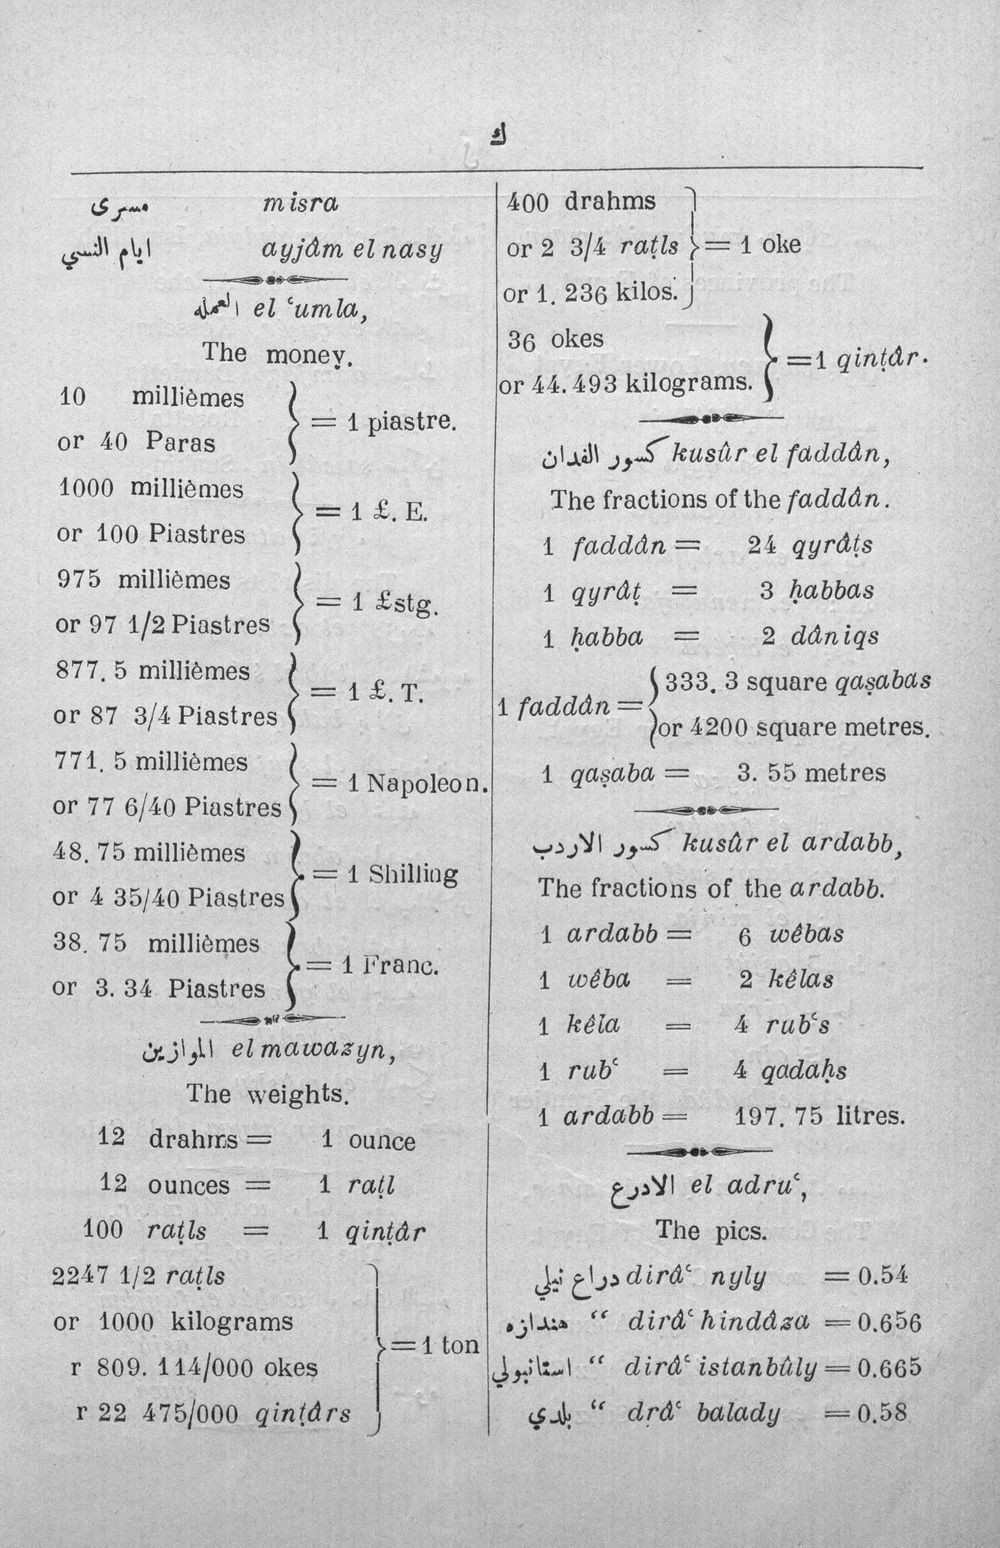 ك
مسرى misra
ايام النسي ayjâm el nasy
العمله el ʿumla,
The money.
10 millièmes
or 40 Paras
= 1 piastre.
1000 millièmes
or 100 Piastres
= 1 £. E.
975 millièmes
or 97 1/2 Piastres
= 1 £stg.
877. 5 millièmes
or 87 3/4 Piastres
= 1 £. T.
771. 5 millièmes
or 77 6/40 Piastres
= 1 Napoleon.
48. 75 millièmes
or 4 35/40 Piastres
= 1 Shilling
38. 75 millièmes
or 3. 34 Piastres
= 1 Franc.
الموازين el mawazyn,
The weights.
12 drahms = 1 ounce
12 ounces = 1 raṭl
100 raṭls = 1 qinṭâr
2247 1/2 raṭls
or 1000 kilograms
r 809. 114/000 okes
r 22 475/000 qinṭârs
= 1 ton
400 drahms
or 2 3/4 raṭls
or 1. 236 kilos.
= 1 oke
36 okes
or 44. 493 kilograms.
= 1 qinṭâr.
كسور الفدان kusûr el faddân,
The fractions of the faddân.
1 faddân = 24 qyrâṭs
1 qyrâṭ = 3 ḥabbas
1 ḥabba = 2 dâniqs
1 faddân =
333. 3 square qaṣabas
or 4200 square metres.
1 qaṣaba = 3. 55 metres
كسور الاردب kusûr el ardabb,
The fractions of the ardabb.
1 ardabb = 6 wêbas
1 wêba = 2 kêlas
1 kêla = 4 rubʿs
1 rubʿ = 4 qadaḥs
1 ardabb = 197. 75 litres.
الادرع el adruʿ,
The pics.
دراع نيلي dirâʿ nyly = 0.54
هندازه “ dirâʿ hinddâza = 0.656
استانبولي “ dirâʿ istanbûly = 0.665
بلدي “ drâʿ balady = 0.58